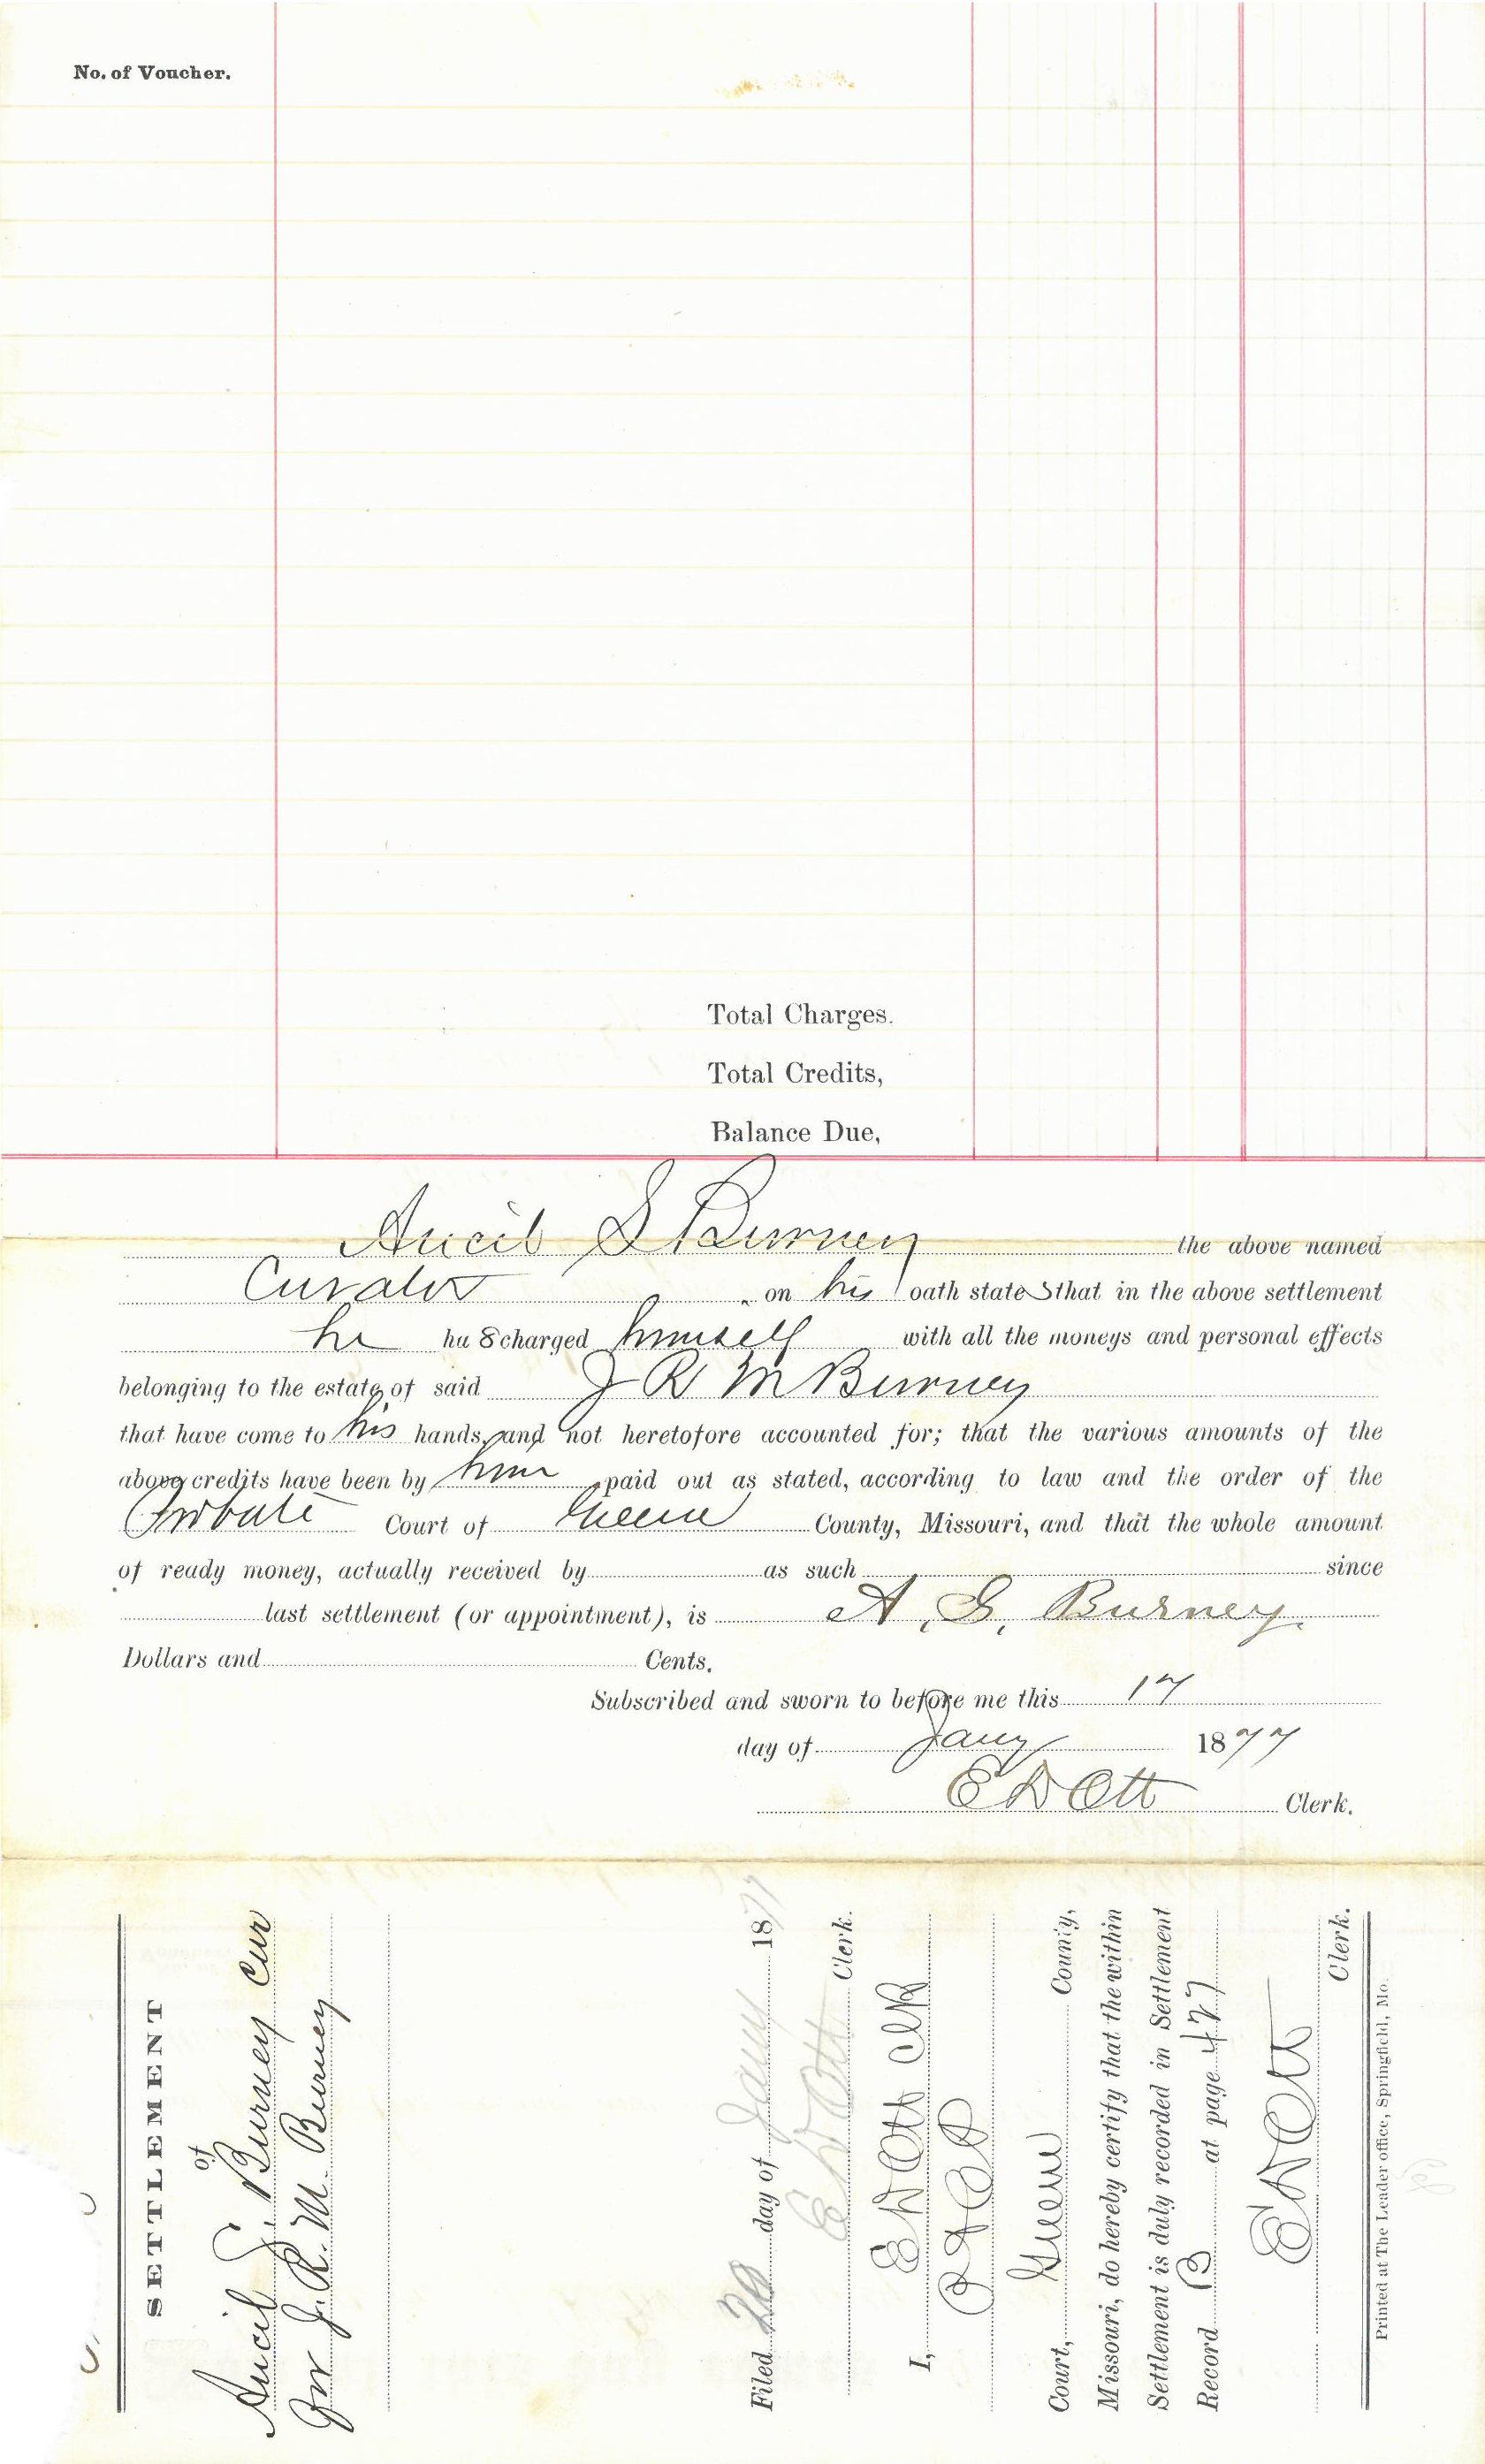 No. of Voucher.
Total Charges.
Total Credits,
Balance Due,
Ancil S Burney the above named
Curator on his oath states that in the above settlement
he has charged himself with all the moneys and personal effects
belonging to the estate of said J R M Burney
that have come to his hands, and not heretofore accounted for; that the various amounts of the
above credits have been by him paid out as stated, according to law and the order of the
Probate Court of Greene County, Missouri, and that the whole amount
of ready money, actually received by as such since
last settlement (or appointment), is A. S. Burney.
Dollars and Cents.
Subscribed and sworn to before me this 17
day of Jany 1877
E D Ott Clerk.
SETTLEMENT
of
Ancil S. Burney Cur
for J. R. M. Burney
Filed 20 day of Jany 1877
E D Ott Clerk.
I, E D Ott Clk
Court, Greene County,
Missouri, do hereby certify that the within
Settlement is duly recorded in Settlement
Record B at page 427
E D Ott
Clerk.
Printed at The Leader office, Springfield, Mo.